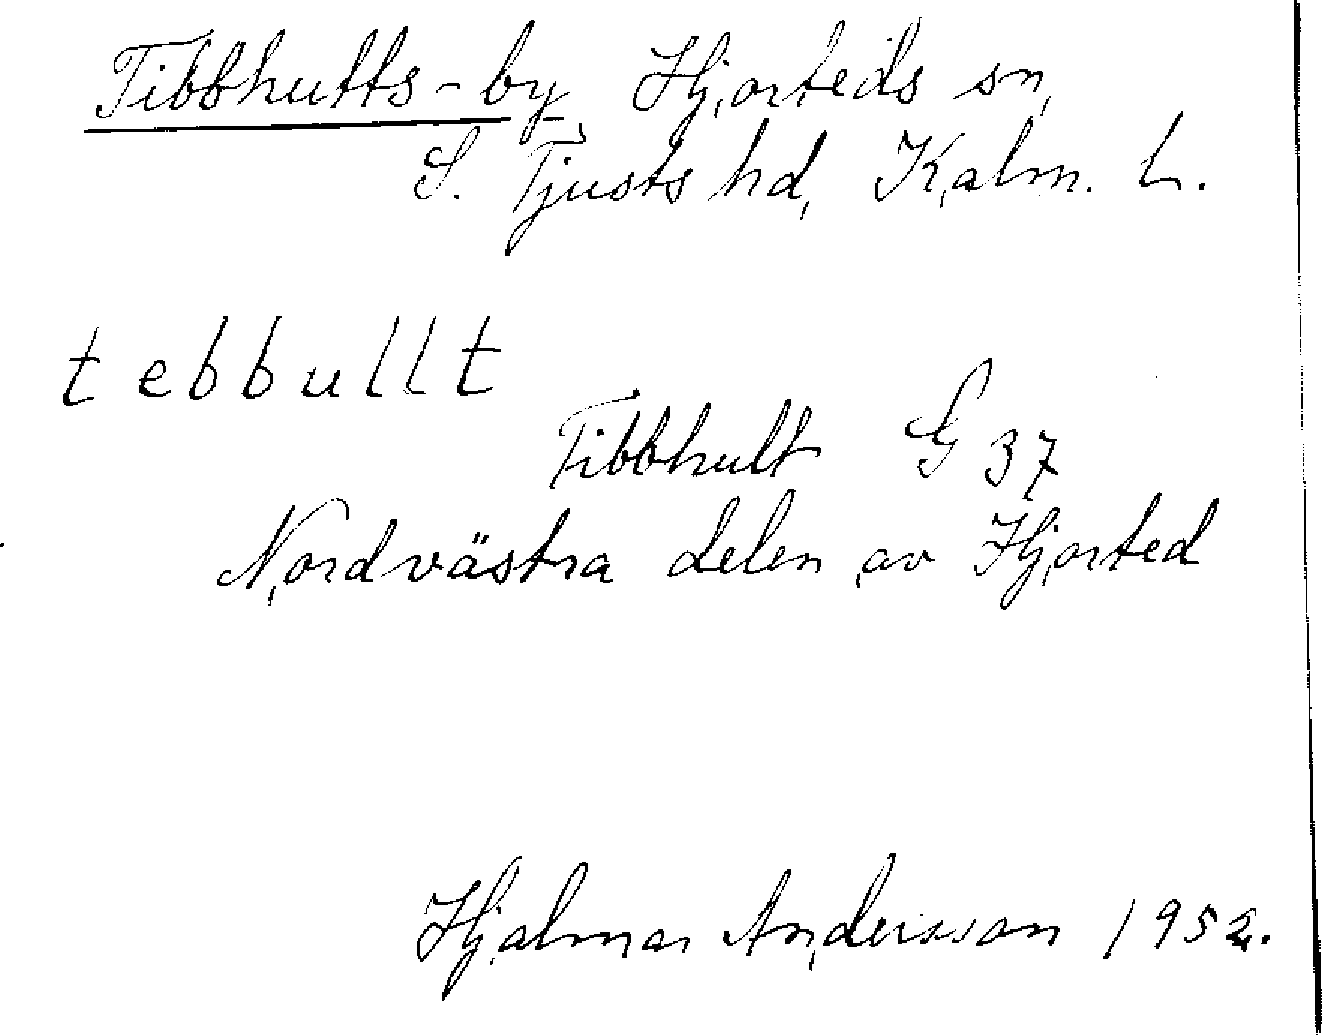 Tibbhults-by Hjorteds sn,
S. Tjusts hd, Kalm. L.
tebbullt
Tibbhult G 37
Nordvästra delen av Hjorted
Hjalmar Andersson 1952.